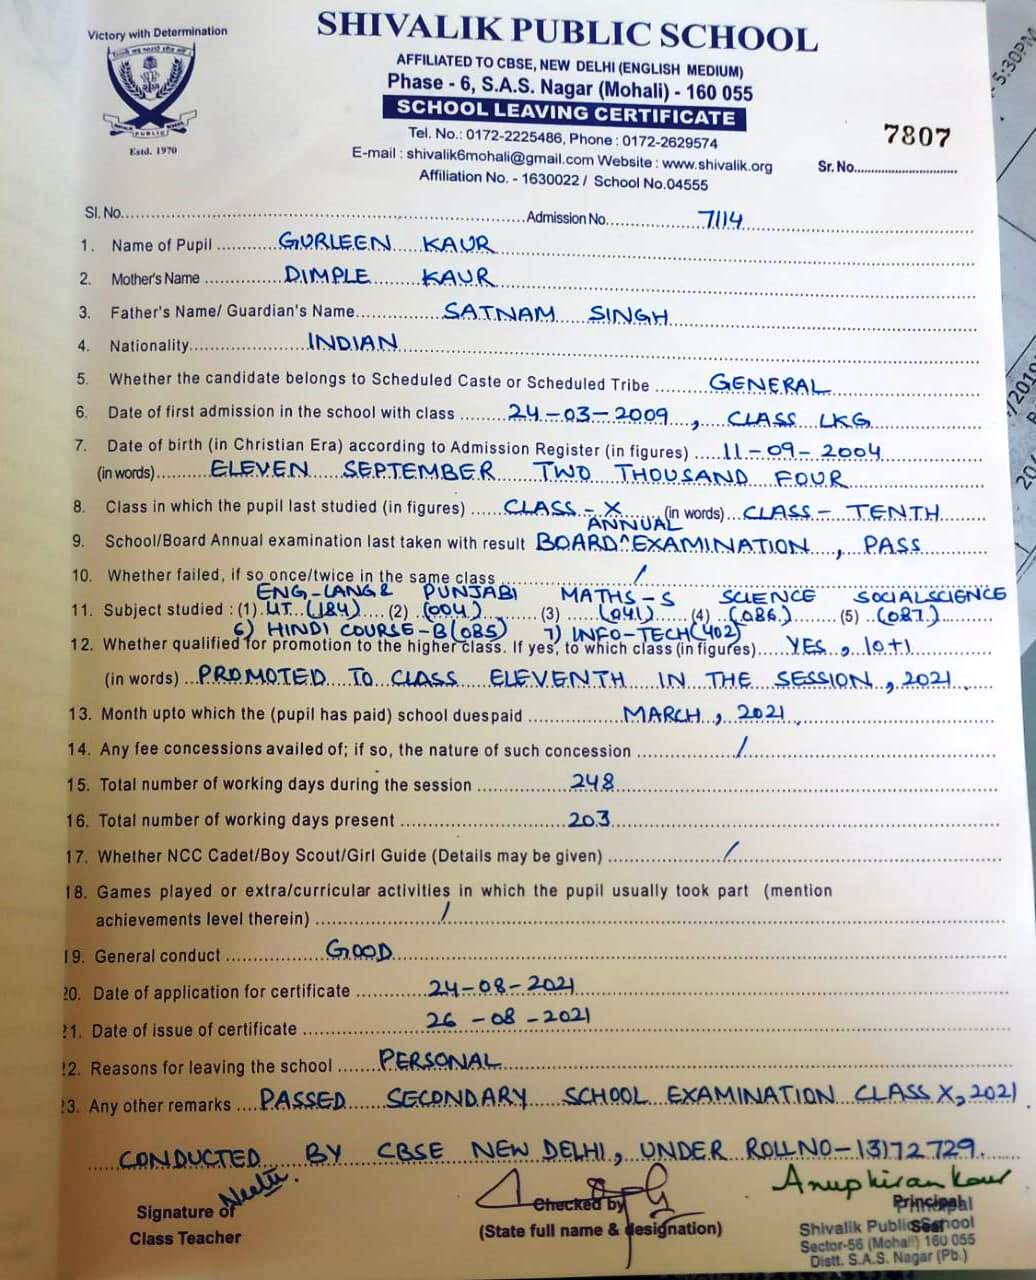 Victory with Determination
SHIVALIK PUBLIC SCHOOL
AFFILIATED TO CBSE, NEW DELHI (ENGLISH MEDIUM)
Phase - 6, S.A.S. Nagar (Mohali) - 160 055
SCHOOL LEAVING CERTIFICATE
PUBLIC
Estd. 1970
Tel. No.: 0172-2225486, Phone : 0172-2629574
E-mail : shivalik6mohali@gmail.com Website : www.shivalik.org
Affiliation No. - 1630022 / School No.04555
7807
Sr. No.
5:30PM
Sl. No. Admission No. 7114
1. Name of Pupil GURLEEN KAUR
2. Mother's Name DIMPLE KAUR
3. Father's Name/ Guardian's Name SATNAM SINGH
4. Nationality INDIAN
5. Whether the candidate belongs to Scheduled Caste or Scheduled Tribe GENERAL
6. Date of first admission in the school with class 24-03-2009, CLASS LKG
7. Date of birth (in Christian Era) according to Admission Register (in figures) 11-09-2004
(in words) ELEVEN SEPTEMBER TWO THOUSAND FOUR
8. Class in which the pupil last studied (in figures) CLASS-X (in words) CLASS-TENTH
9. School/Board Annual examination last taken with result BOARD ^ANNUAL EXAMINATION, PASS
10. Whether failed, if so once/twice in the same class /
ENG-LANG& PUNJABI MATHS-S SCIENCE SOCIALSCIENCE
11. Subject studied : (1) LIT. (184) (2) (004) (3) (041) (4) (086) (5) (087)
6) HINDI COURSE-B(085) 7) INFO-TECH(402)
12. Whether qualified for promotion to the higher class. If yes, to which class (in figures) YES, 10+1
(in words) PROMOTED TO CLASS ELEVENTH IN THE SESSION, 2021
13. Month upto which the (pupil has paid) school duespaid MARCH, 2021
14. Any fee concessions availed of; if so, the nature of such concession /
15. Total number of working days during the session 248
16. Total number of working days present 203
17. Whether NCC Cadet/Boy Scout/Girl Guide (Details may be given) /
18. Games played or extra/curricular activities in which the pupil usually took part (mention
achievements level therein) /
19. General conduct GOOD
20. Date of application for certificate 24-08-2021
21. Date of issue of certificate 26-08-2021
22. Reasons for leaving the school PERSONAL
23. Any other remarks PASSED SECONDARY SCHOOL EXAMINATION CLASS X, 2021
CONDUCTED BY CBSE NEW DELHI, UNDER ROLLNO-13172729.
Neetu. Anupkiran Kaur
Signature of Checked by Principal
Class Teacher (State full name & designation) Seal
Principal
Shivalik Public School
Sector-56 (Mohali) 160 055
Distt. S.A.S. Nagar (Pb.)